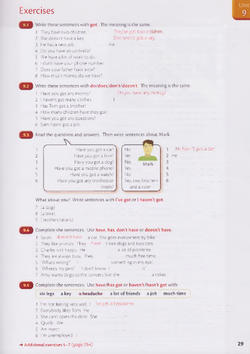 Exercises
Unit
9
9.1 Write these sentences with got. The meaning is the same.
1 They have two children. They've got two children.
2 She doesn't have a key. She hasn't got a key.
3 He has a new job. He
4 Do you have an umbrella?
5 We have a lot of work to do.
6 I don't have your phone number.
7 Does your father have a car?
8 How much money do we have?
9.2 Write these sentences with do/does/don't/doesn't. The meaning is the same.
1 Have you got any money? Do you have any money?
2 I haven't got many clothes. I
3 Has Tom got a brother?
4 How many children have they got?
5 Have you got any questions?
6 Sam hasn't got a job.
9.3 Read the questions and answers. Then write sentences about Mark.
1 Have you got a car? No
2 Have you got a bike? Yes
3 Have you got a dog? No
4 Have you got a mobile phone? Yes
5 Have you got a watch? No
6 Have you got any brothers or sisters? Yes, two brothers and a sister
Mark
1 He hasn't got a car.
2 He
What about you? Write sentences with I've got or I haven't got.
7 (a dog)
8 (a bike)
9 (brothers/sisters)
9.4 Complete the sentences. Use have, has, don't have or doesn't have.
1 Sarah doesn't have a car. She goes everywhere by bike.
2 They like animals. They have three dogs and two cats.
3 Charles isn't happy. He a lot of problems.
4 They are always busy. They much free time.
5 'What's wrong?' 'I something in my eye.'
6 'Where's my pen?' 'I don't know. I it.'
7 Amy wants to go to the concert, but she a ticket.
9.5 Complete the sentences. Use have/has got or haven't/hasn't got with
six legs a key a headache a lot of friends a job much time
1 I'm not feeling very well. I 've got a headache.
2 Everybody likes Tom. He
3 She can't open the door. She
4 Quick! We
5 An insect
6 I'm unemployed. I
Additional exercises 5–7 (page 254)
29